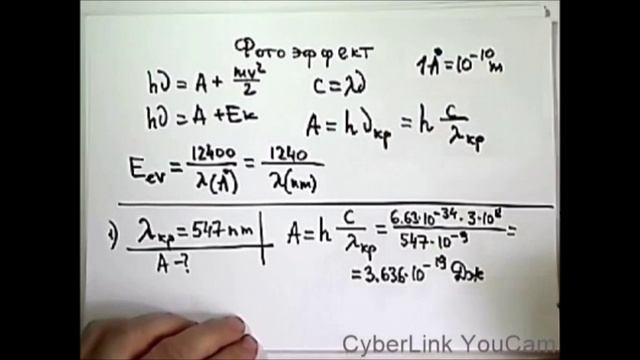 Фотоэффект
1Å = 10⁻¹⁰ m
hν = A + mv²/2
c = λν
hν = A + Eк
A = hν кр = h c/λ кр
E ev = 12400/λ(Å) = 1240/λ(nm)
1) λ кр = 547 nm
A = h c/λ кр = 6.63·10⁻³⁴·3·10⁸/547·10⁻⁹ =
A - ?
= 3.636·10⁻¹⁹ Дж
CyberLink YouCam